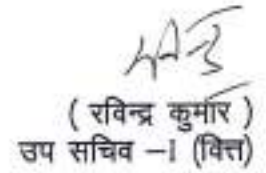 ( रविन्द्र कुमार )
उप सचिव –I (वित्त)